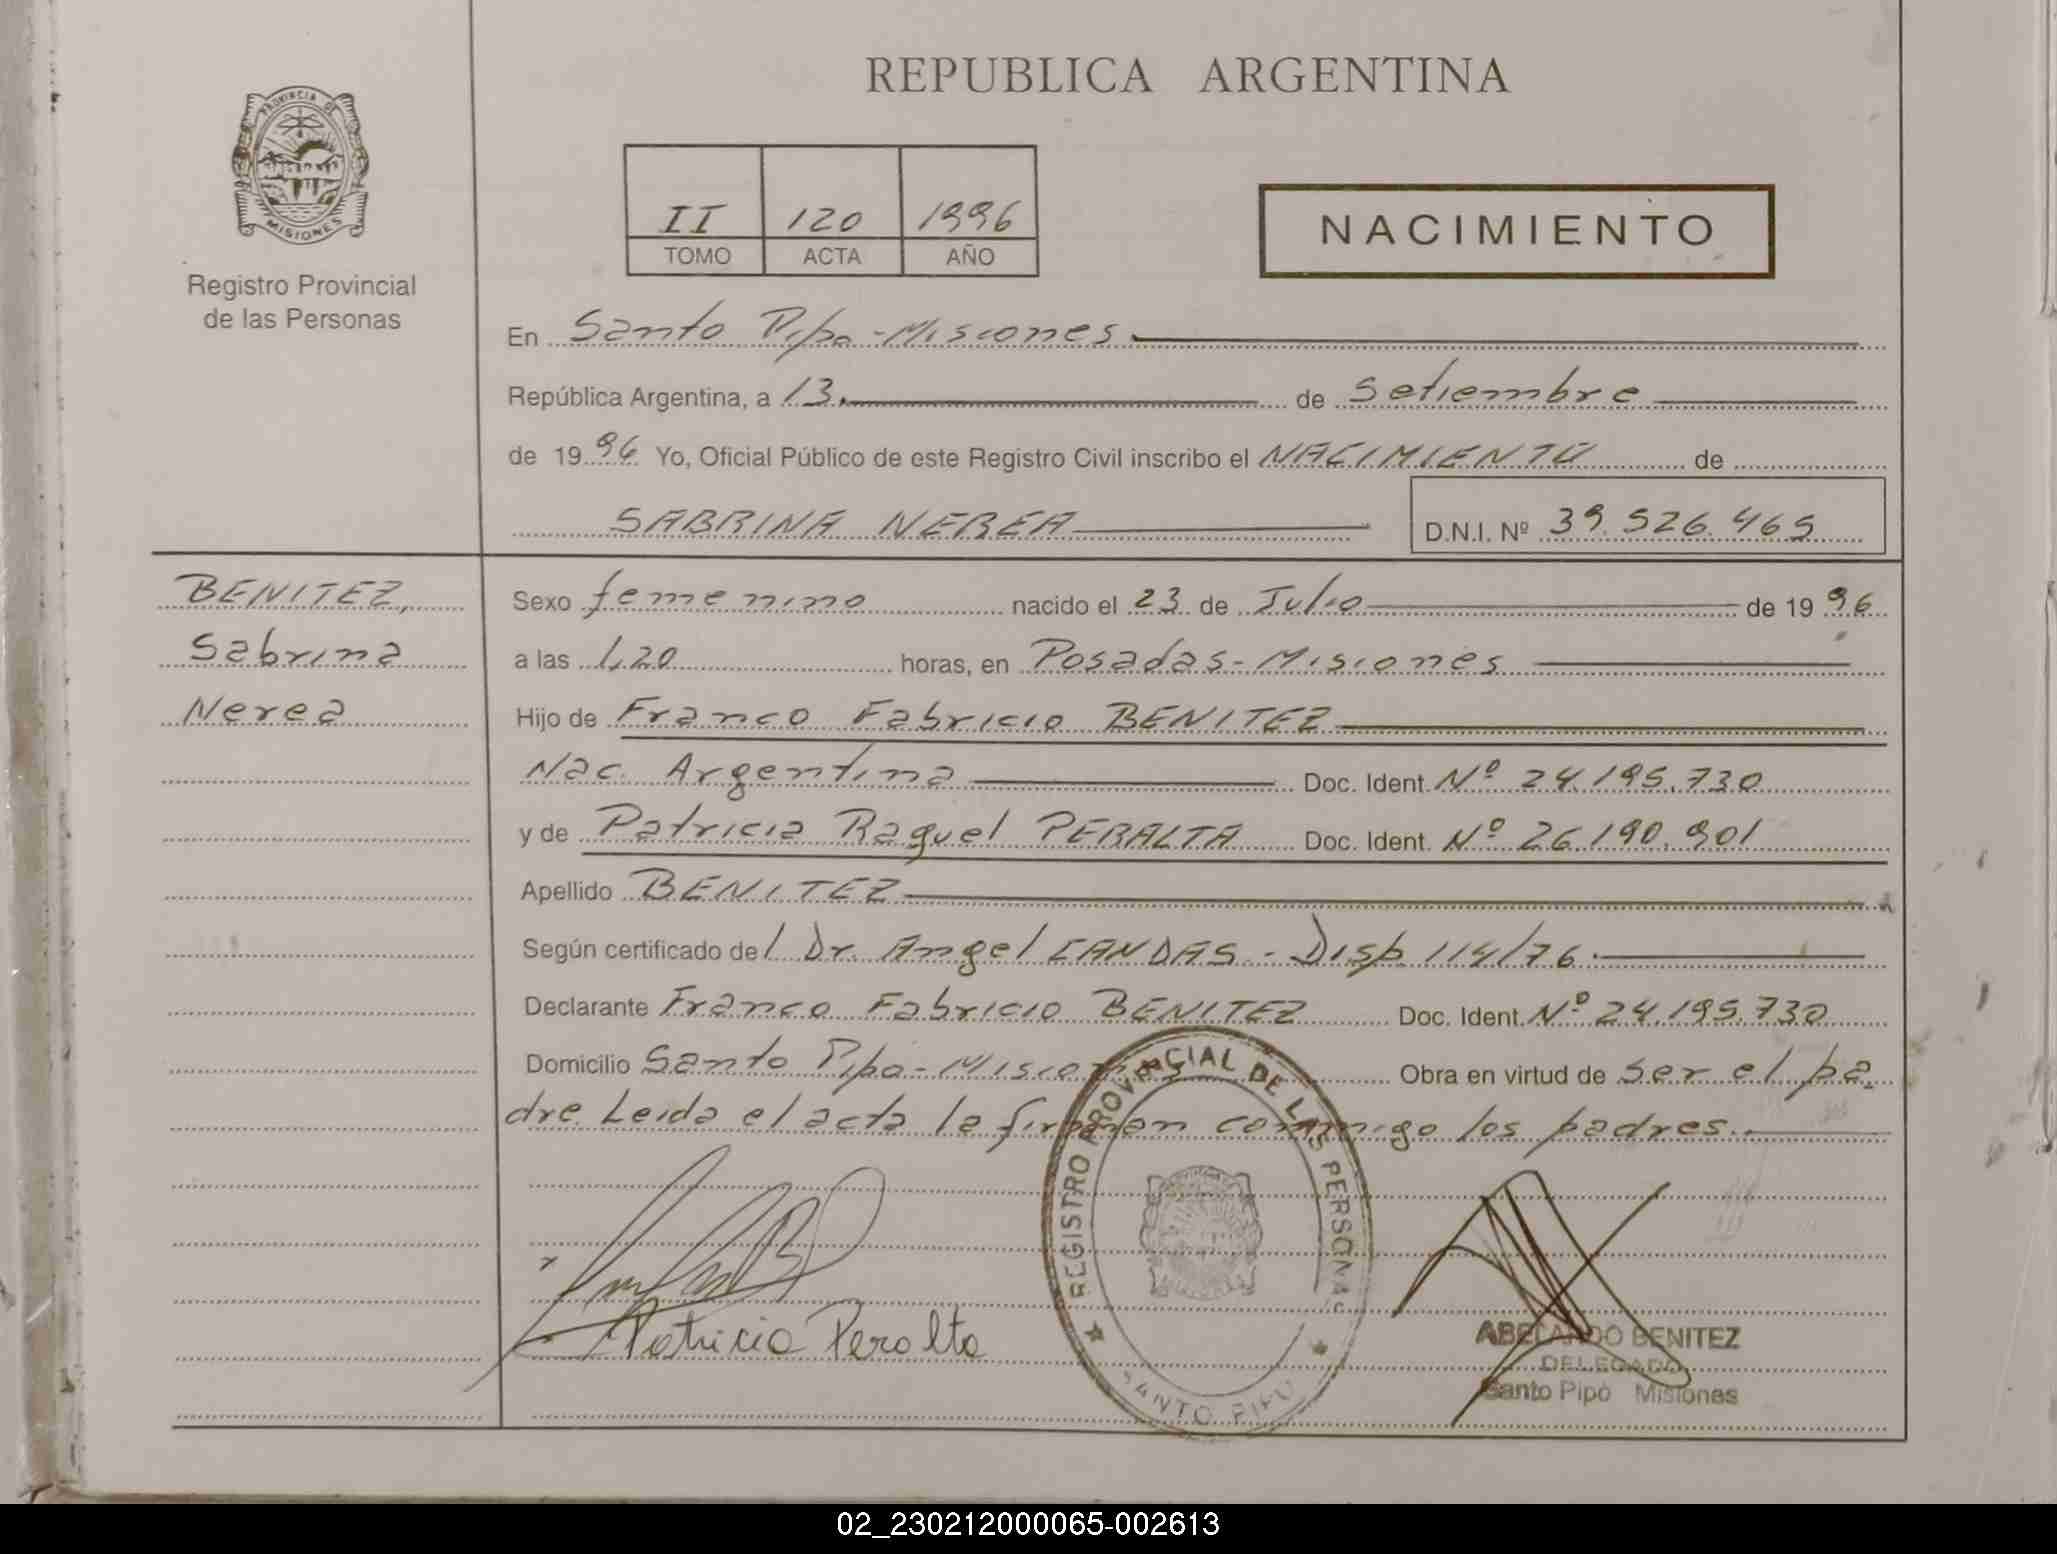 REPUBLICA ARGENTINA
PROVINCIA DE MISIONES
Registro Provincial
de las Personas
II 120 1996
TOMO ACTA AÑO
NACIMIENTO
En Santo Pipo - Misiones
República Argentina, a 13. de Setiembre
de 1996 Yo, Oficial Público de este Registro Civil inscribo el NACIMIENTO de
SABRINA NEREA D.N.I. Nº 39.526.465
BENITEZ,
Sabrina
Nerea
Sexo femenino nacido el 23 de Julio de 1996
a las 1,20 horas, en Posadas - Misiones
Hijo de Franco Fabricio BENITEZ
Nac. Argentina Doc. Ident. Nº 24.195.730
y de Patricia Raquel PERALTA Doc. Ident. Nº 26.190.901
Apellido BENITEZ
Según certificado del Dr. Angel CANDAS - Disp. 114/76.
Declarante Franco Fabricio BENITEZ Doc. Ident. Nº 24.195.730
Domicilio Santo Pipo - Misiones Obra en virtud de ser el pa-
dre. Leida el acta la firman conmigo los padres.
REGISTRO PROVINCIAL DE LAS PERSONAS
SANTO PIPO
Patricia Peralta
ABELARDO BENITEZ
DELEGADO
Santo Pipó Misiones
02_230212000065-002613